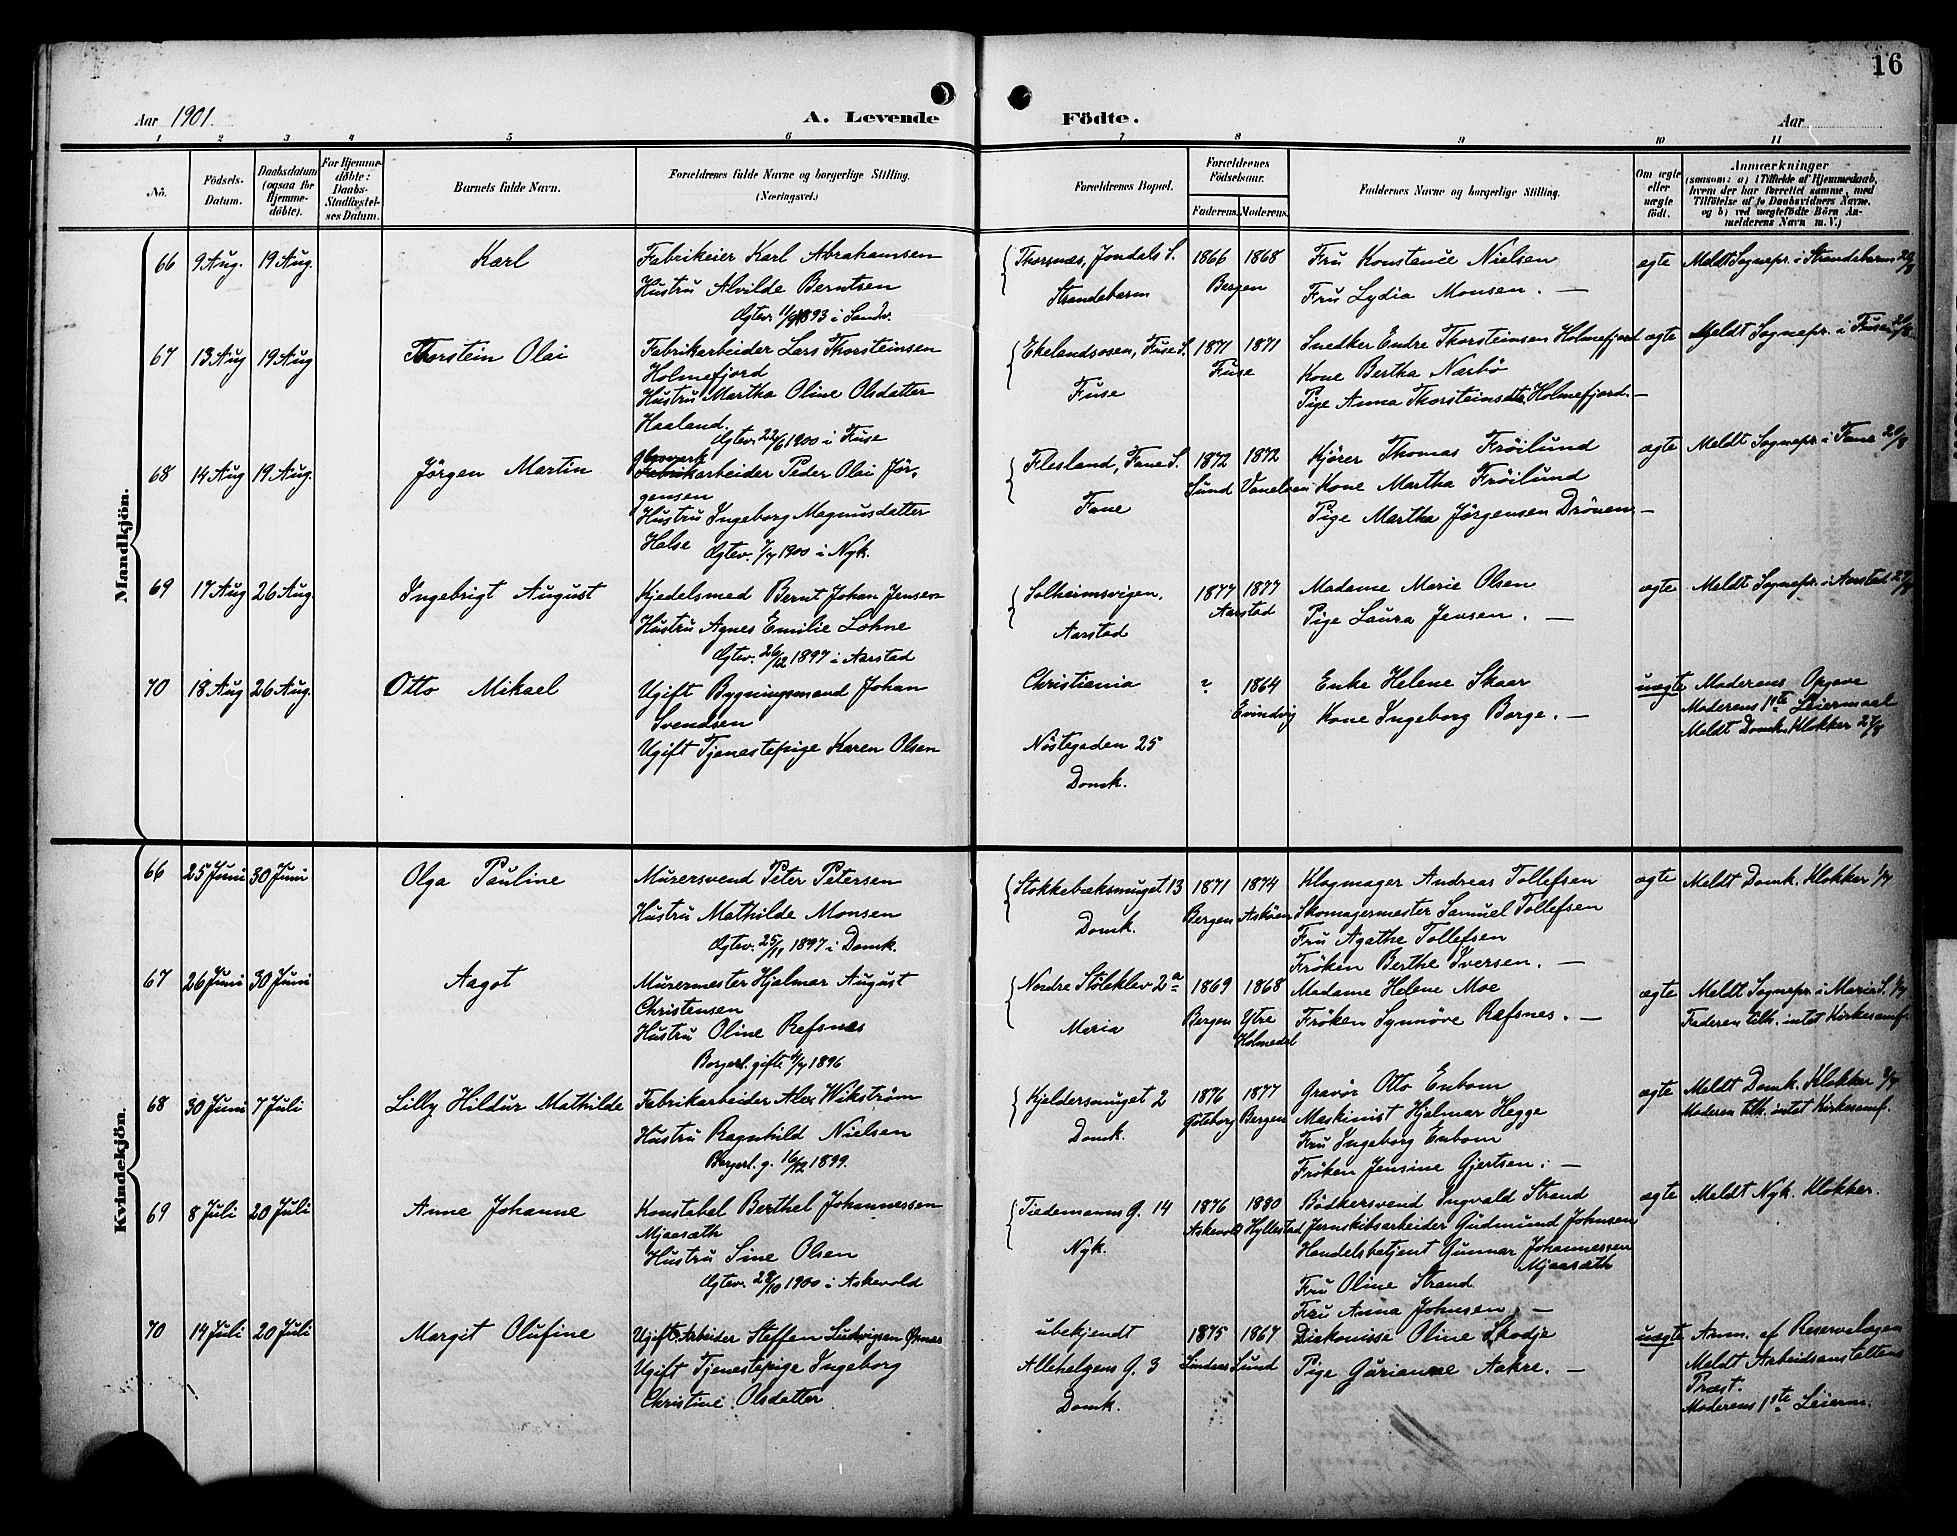 16
Aar 1901.
A. Levende Födte.
Aar
1 2 3 4 5 6 7 8 9 10 11
No.
Födsels-Datum.
Daabsdatum (ogsaa for Hjemme-döbte).
For Hjemme-döbte: Daabs-Stadfæstel-ses Datum.
Barnets fulde Navn.
Forældrenes fulde Navne og borgerlige Stilling. (Næringsvei.)
Forældrenes Bopæl.
Forældrenes Födselsaar.
Faderens. Moderens.
Faddernes Navne og borgerlige Stilling.
Om ægte eller uægte födt.
Anmærkninger
(saasom: a) i Tilfælde af Hjemmedaab,
hvem der har forrettet samme, med
Tilföielse af to Daabsvidners Navne.
og b) ved uægtefödte Börn An-
melderens Navn m. V.)
Mandkjön.
66 9 Aug. 19 Aug. Karl
Fabrikeier Karl Abrahamsen
Hustru Alvilde Berntsen
Ægtev. 1893 i Sandv.
Thorsnæs, Jondals S.
Strandebarm
1866 1868
Bergen
Fru Konstance Nielsen
Fru Lydia Monsen. —
ægte
Meldt Sognepr. i Strandebarm 20/8
67 13 Aug 19 Aug Thorstein Olai
Fabrikarbeider Lars Thorsteinsen
Holmefjord
Hustru Martha Oline Olsdatter
Haaland.
Ægtev. 22/6 1900 i Fuse
Ekelandsosen, Fuse S.
Fuse
1871 1871
Fuse
Snedker Endre Thorsteinsen Holmefjord
Kone Bertha Nærbö
Pige Anna Thorsteinsdtr. Holmefjord. —
ægte
Meldt Sognepr. i Fuse 20/8
68 14 Aug 19 Aug. Jørgen Martin
Fabrikarbeider Peder Olai Jør-
gensen
Hustru Ingeborg Magnusdatter
Halse
Ægtev. 1900 i Nyk.
Flesland, Fane S.
Fane
1872 1872
Sund
Kjører Thomas Frøilund
Kone Martha Frøilund
Pige Martha Jørgensen Drönen —
ægte
Meldt Sognepr. i Fane 20/8
69 17 Aug 26 Aug. Ingebrigt August
Kjedelsmed Bernt Johan Jensen
Hustru Agnes Emilie Lohne
Ægtev. 26/12 1897 i Aarstad
Solheimsvigen,
Aarstad
1877 1877
Aarstad
Madame Marie Olsen
Pige Laura Jensen. —
ægte
Meldt Sognepr. i Aarstad 27/8
70 18 Aug 26 Aug. Otto Mikael
Ugift Bygningsmand Johan
Svendsen
Ugift Tjenestepige Karen Olsen
Christiania
Nöstegaden 25
Domk.
? 1864
Evindvig
Enke Helene Skaar
Kone Ingeborg Borge. —
uægte
Moderens Opgave
Moderens 1ste Leiermaal
Meldt Domk. Klokker 27/8
Kvindekjön.
66 25 Juni 30 Juni Olga Pauline
Murersvend Peter Petersen
Hustru Mathilde Monsen
Ægtev. 25/11 1897 i Domk.
Stokkebæksmuget 13
Domk.
1871 1874
Bergen Askøen
Klogmager Andreas Tollefsen
Skomagermester Samuel Tollefsen
Fru Agathe Tollefsen
Frøken Berthe Iversen. —
ægte
Meldt Domk. Klokker 1/7
67 26 Juni 30 Juni Aagot
Murermester Hjalmar August
Christensen
Hustru Oline Refsnes
Borgerl. gifte 1896
Nordre Stöleklev 2a
Maria
1869 1868
Bergen Ytre Holmedal
Madame Helene Moe
Frøken Synnöve Refsnes. —
ægte
Meldt Sognepr. i Maria S. 1/7
Faderen tilh. intet Kirkesamf.
68 30 Juni 7 Juli Lilly Hildur Mathilde
Fabrikarbeider Alex Wikström
Hustru Ragnhild Nielsen
Borgerl. g. 16/12 1899.
Kjeldersmuget 2
Domk.
1876 1877
Göteborg Bergen
Gravør Otto Enbom
Maskinist Hjalmar Hegge
Fru Ingeborg Enbom
Frøken Jensine Gjertsen. —
ægte
Meldt Domk. Klokker
Moderen tilh. intet Kirkesamf.
69 8 Juli 20 Juli Anne Johanne
Konstabel Berthel Johannessen
Mjaasæth
Hustru Sine Olsen
Ægtev. 28/10 1900 i Askevold
Tiedemanns G. 14
Nyk.
1876 1880
Askevold Hyllestad
Bødkersvend Ingvald Strand
Jernskibsarbeider Gudmund Johnsen
Handelsbetjent Gunnar Johannessen
Mjaasæth
Fru Oline Strand
Fru Anna Johnsen. —
ægte
Meldt Nyk. Klokker.
70 14 Juli 20 Juli Margit Olufine
Ugift Arbeider Steffen Ludvigsen
Ugift Tjenestepige Ingeborg
Christine Olsdatter
ubekjendt
Allehelgens G. 3
Domk.
1875 1867
Lindaas Sund
Diakonisse Oline Skodje
Pige Gurianne Aakre. —
uægte
Anm. af Reservelægen
Meldt Arbeidsanstaltens
Præst.
Moderens 1ste Leierm.